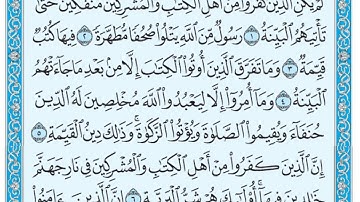 لَمْ يَكُنِ الَّذِينَ كَفَرُوا مِنْ أَهْلِ الْكِتَابِ وَالْمُشْرِكِينَ مُنفَكِّينَ حَتَّىٰ
تَأْتِيَهُمُ الْبَيِّنَةُ ١ رَسُولٌ مِّنَ اللَّهِ يَتْلُوا صُحُفًا مُّطَهَّرَةً ٢ فِيهَا كُتُبٌ
قَيِّمَةٌ ٣ وَمَا تَفَرَّقَ الَّذِينَ أُوتُوا الْكِتَابَ إِلَّا مِن بَعْدِ مَا جَاءَتْهُمُ
الْبَيِّنَةُ ٤ وَمَا أُمِرُوا إِلَّا لِيَعْبُدُوا اللَّهَ مُخْلِصِينَ لَهُ الدِّينَ
حُنَفَاءَ وَيُقِيمُوا الصَّلَوٰةَ وَيُؤْتُوا الزَّكَوٰةَ ۚ وَذَٰلِكَ دِينُ الْقَيِّمَةِ ٥
إِنَّ الَّذِينَ كَفَرُوا مِنْ أَهْلِ الْكِتَابِ وَالْمُشْرِكِينَ فِي نَارِ جَهَنَّمَ
خَالِدِينَ فِيهَا ۚ أُولَٰئِكَ هُمْ شَرُّ الْبَرِيَّةِ ٦ إِنَّ الَّذِينَ ءَامَنُوا